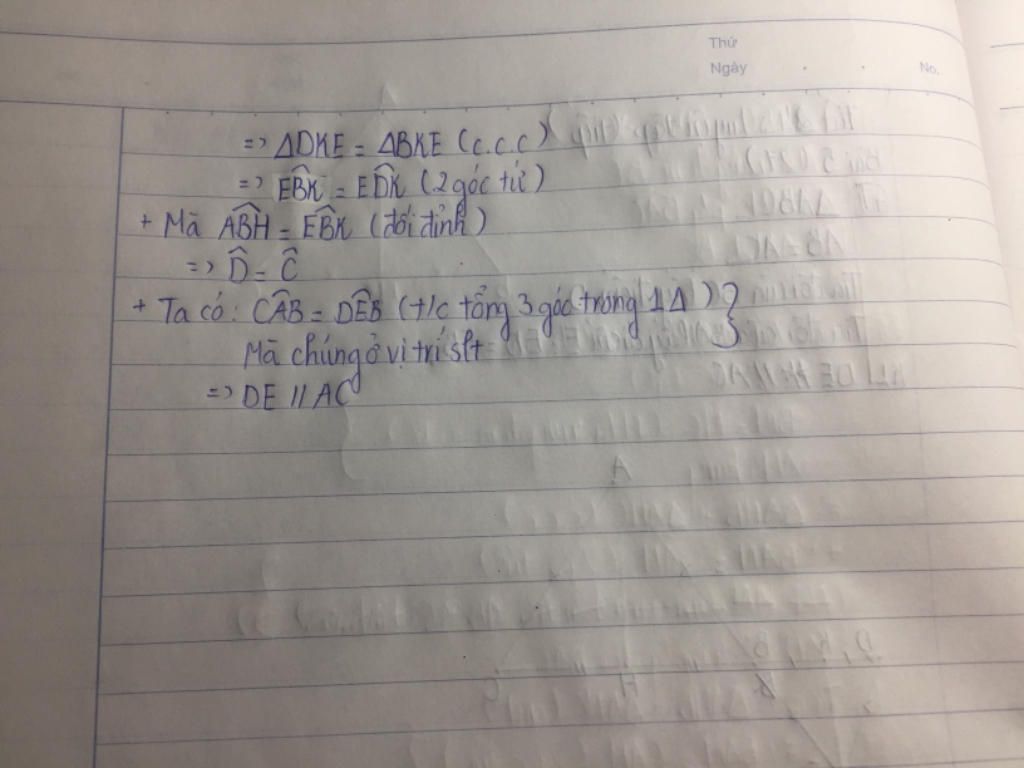 Thứ
Ngày . . No.
=> ΔDKE = ΔBKE (c.c.c)
=> EB̂K = ED̂K (2 góc tứ)
+ Mà AB̂H = EB̂K (đối đỉnh)
=> D̂ = Ĉ
+ Ta có: CÂB = DÊB (t/c tổng 3 góc trong 1Δ) }
Mà chúng ở vị trí slt
=> DE // AC